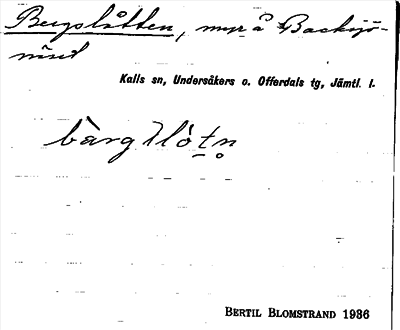 Bergslåtten, myr å Backsjö-
näset
Kalls sn, Undersåkers o. Offerdals tg, Jämtl. l.
bàrgslòtn̥
BERTIL BLOMSTRAND 1936